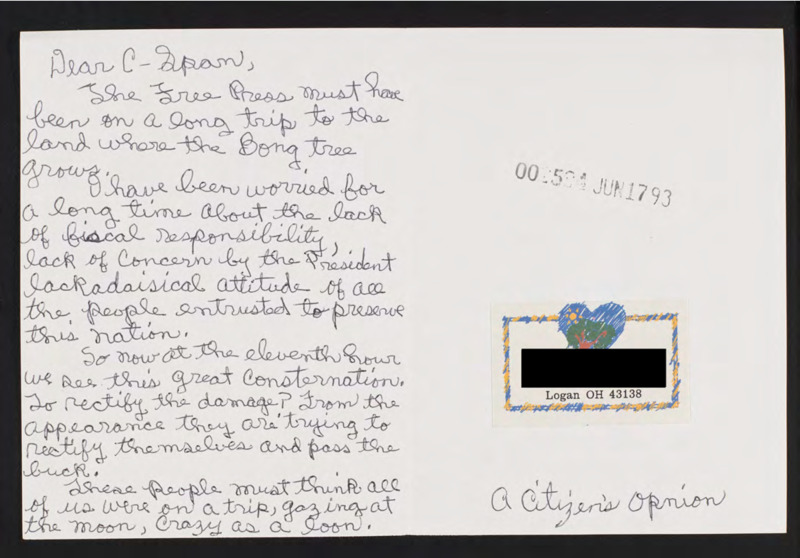 Dear C-Span,
The Free Press must have
been on a long trip to the
land where the Bong tree
grows.
I have been worried for
a long time about the lack
of fiscal responsibility,
lack of concern by the President
lackadaisical attitude of all
the people entrusted to preserve
this nation.
So now at the eleventh hour
we see this great consternation.
To rectify the damage? From the
appearance they are trying to
rectify themselves and pass the
buck.
These people must think all
of us were on a trip, gazing at
the moon, crazy as a loon.
JUN 17 93
Logan OH 43138
A Citizen's Opnion